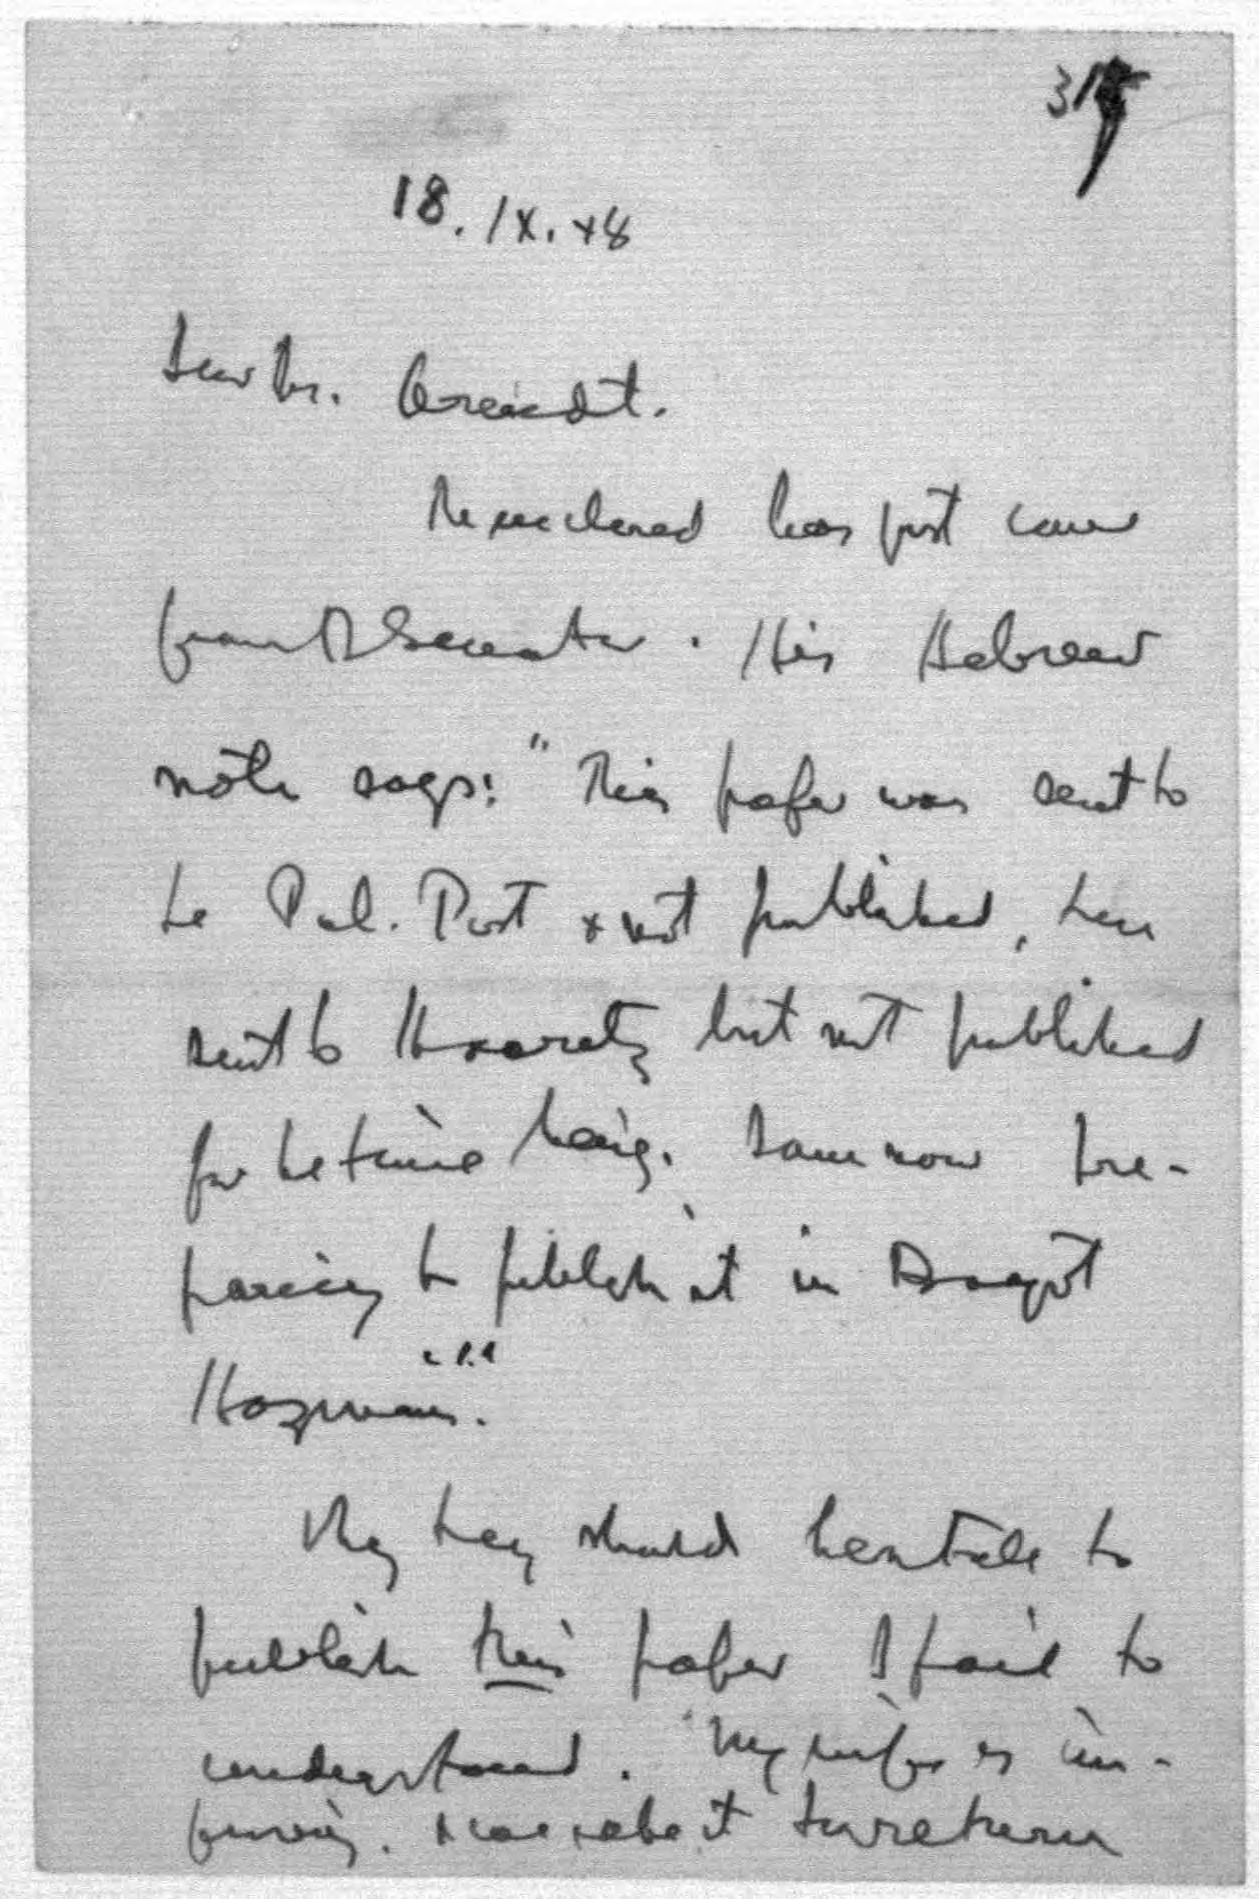 18. IX. 48
Dear Dr. Arendt.
The enclosed has just come
from Dr Senator. His Hebrew
note says: "This paper was sent to
the Pal. Post & not published, then
sent to Haaretz but not published
for the time being. I am now pre-
paring to publish it in Baayot
Hazman."
Why they should hesitate to
publish this paper I fail to
understand. My wife is im-
proving. to return